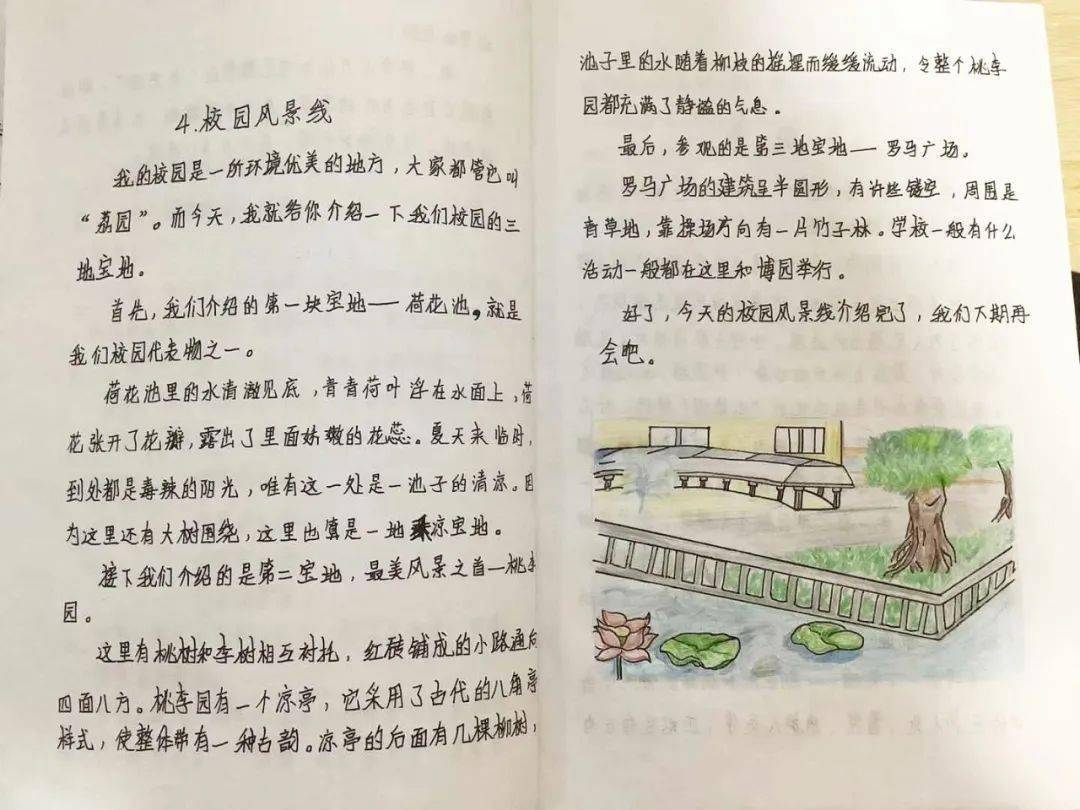 4.校园风景线
我的校园是一所环境优美的地方，大家都管它叫
“荔园”。而今天，我就给你介绍一下我们校园的三
地宝地。
首先，我们介绍的第一块宝地——荷花池，就是
我们校园代表物之一。
荷花池里的水清澈见底，青青荷叶浮在水面上，荷
花张开了花瓣，露出了里面娇嫩的花蕊。夏天来临时，
到处都是毒辣的阳光，唯有这一处是一池子的清凉。因
为这里还有大树围绕，这里也算是一地乘凉宝地。
接下我们介绍的是第二宝地，最美风景之首—桃李
园。
这里有桃树和李树相互衬托，红砖铺成的小路通向
四面八方。桃李园有一个凉亭，它采用了古代的八角亭
样式，使整体带有一种古韵。凉亭的后面有几棵柳树，
池子里的水随着柳枝的摇摆而缓缓流动，令整个桃李
园都充满了静谧的气息。
最后，参观的是第三地宝地——罗马广场。
罗马广场的建筑呈半圆形，有许些镂空，周围是
青草地，靠操场方向有一片竹子林。学校一般有什么
活动一般都在这里和博园举行。
好了，今天的校园风景线介绍完了，我们下期再
会吧。